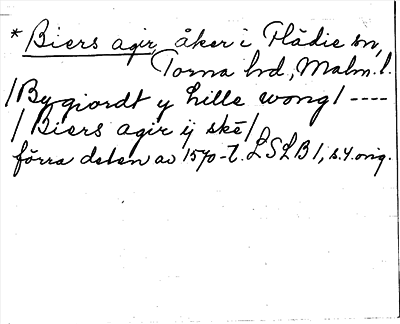 * Biers agir, åker i Flädie sn,
Torna hd, Malm. l.
/Bygiordt y lille wong/ ----
/Biers agir ij ske/
förra delen av 1570-t. LSLB 1, s. 4. orig.